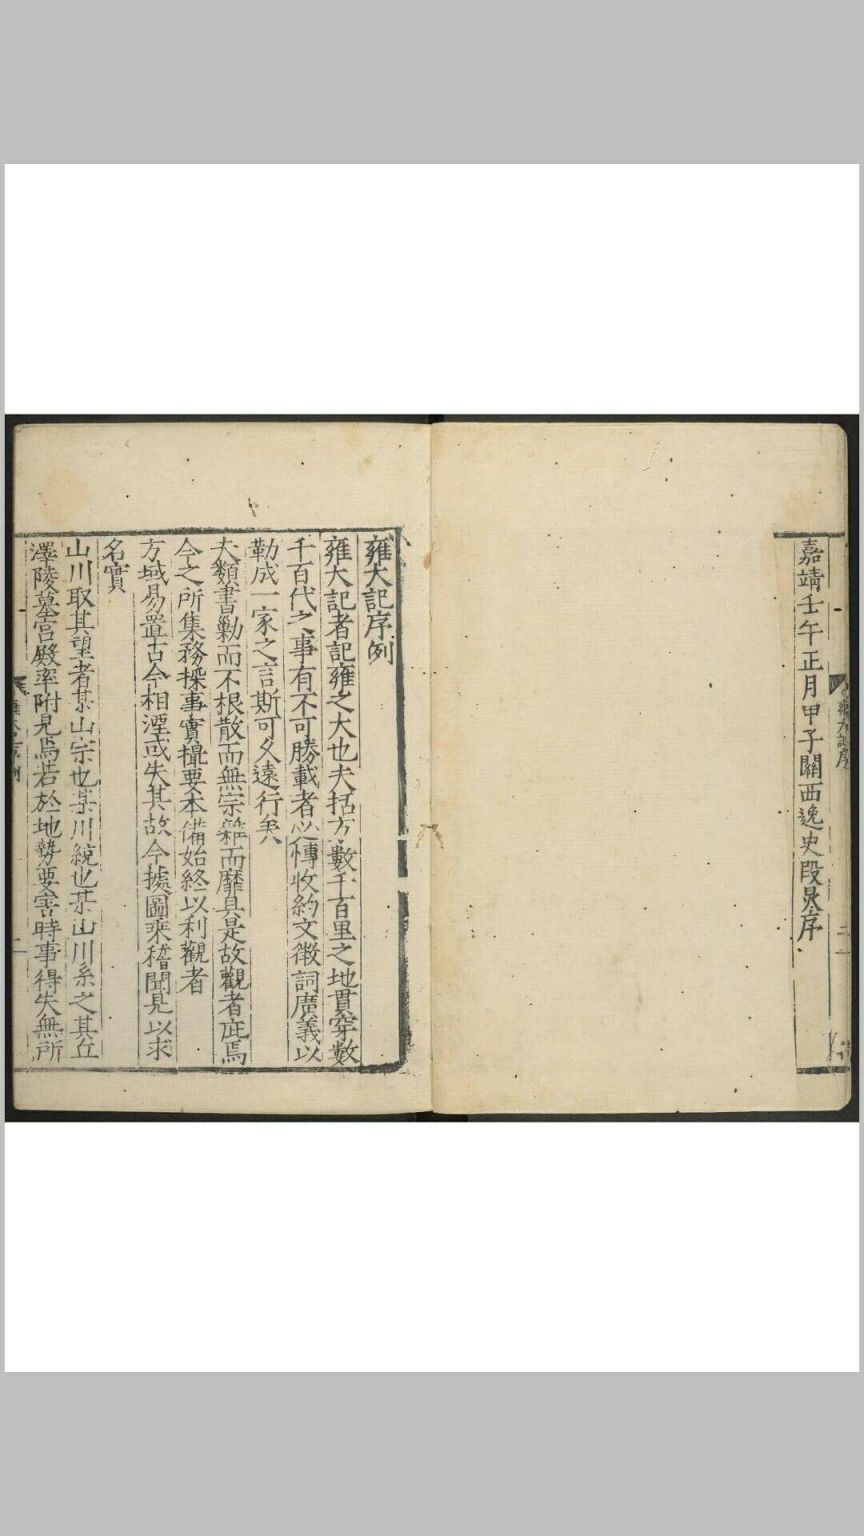 嘉靖壬午正月甲子關西逸史段炅序
雍大記序例
雍大記者記雍之大也夫括方數千百里之地貫穿數
千百代之事有不可勝載者必慱收約文徵詞廣義以
勒成一家之言斯可久遠行矣
大類書勦而不根散而無宗雜而靡具是故觀者疵焉
今之所集務採事實撮要本備始終以利觀者
方域易置古今相湮或失其故今據圖乘稽聞見以求
名實
山川取其望者某山宗也某川統也某山川系之其丘
澤陵墓宮殿率附見焉若於地勢要害時事得失無所